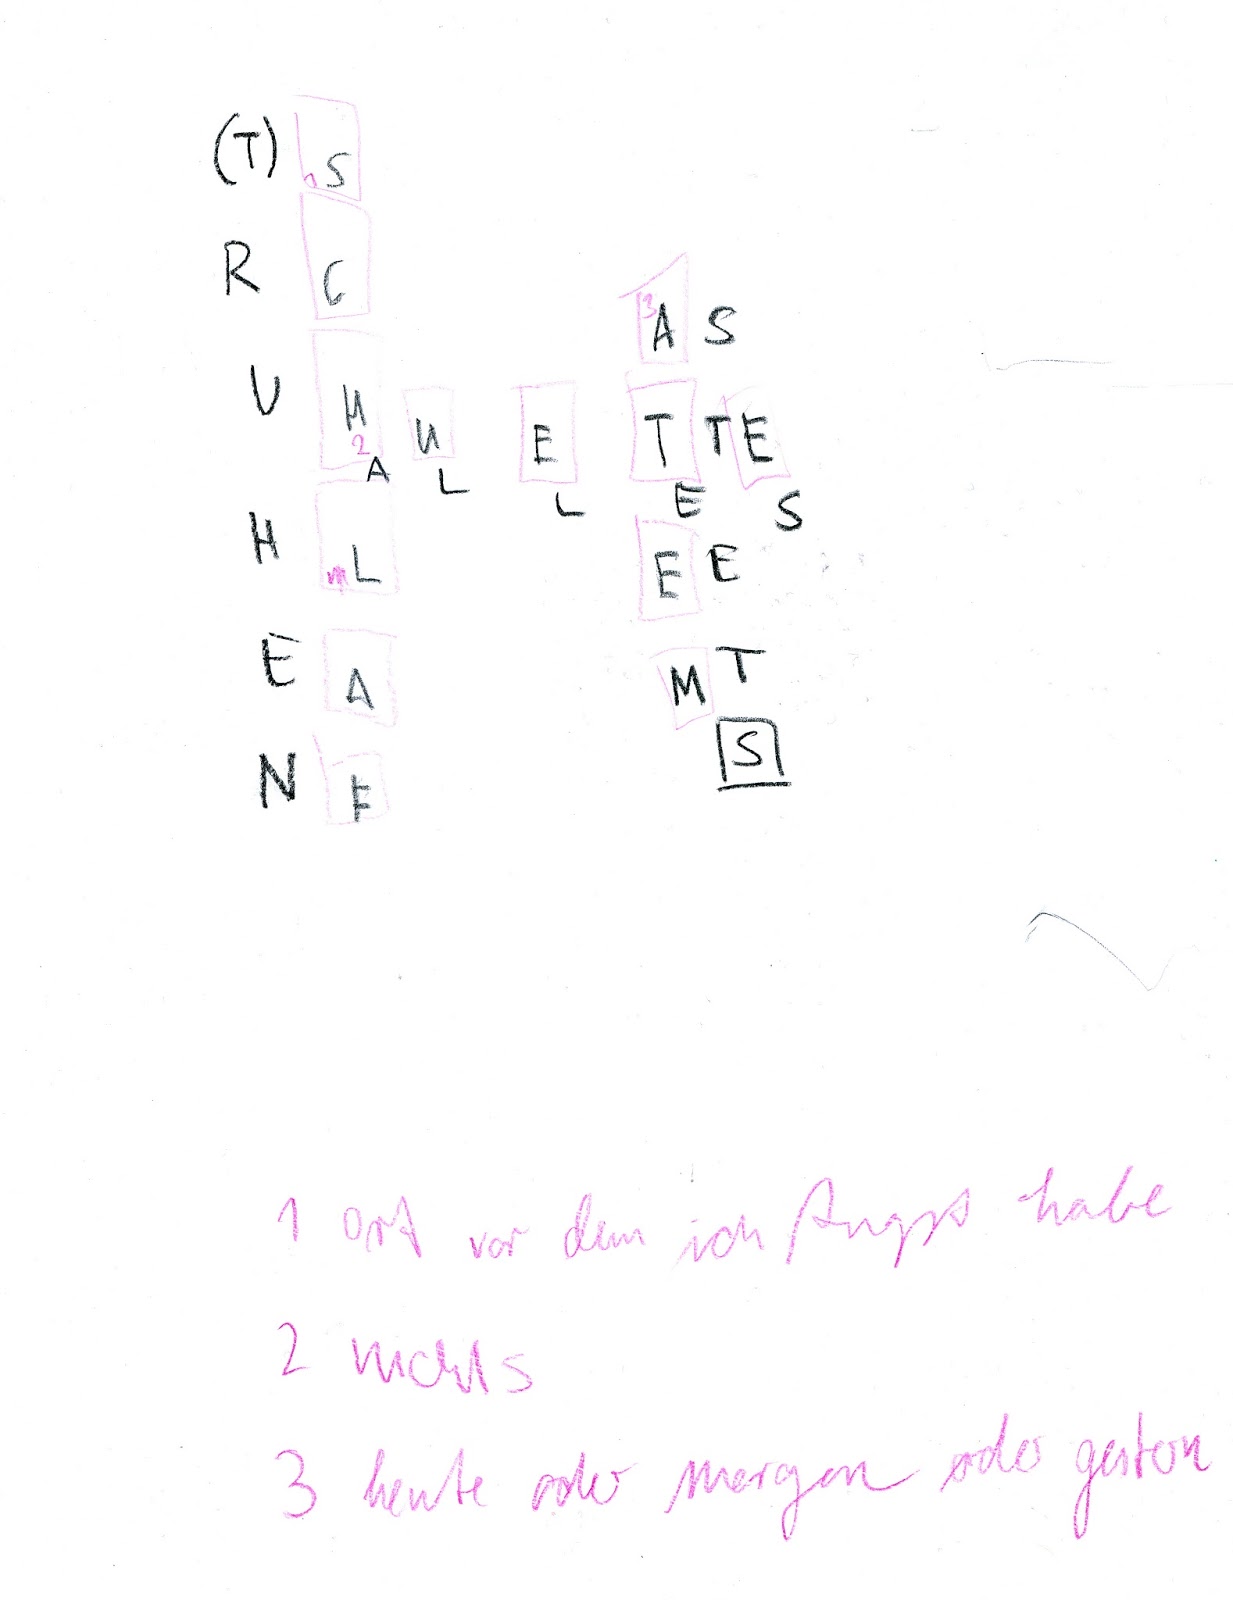 (T) S
R C
A S
U H U E T T E
A L L E S
H L E E
E A M T
S
N F
1 Ort vor dem ich Angst habe
2 nichts
3 heute oder morgen oder gestern